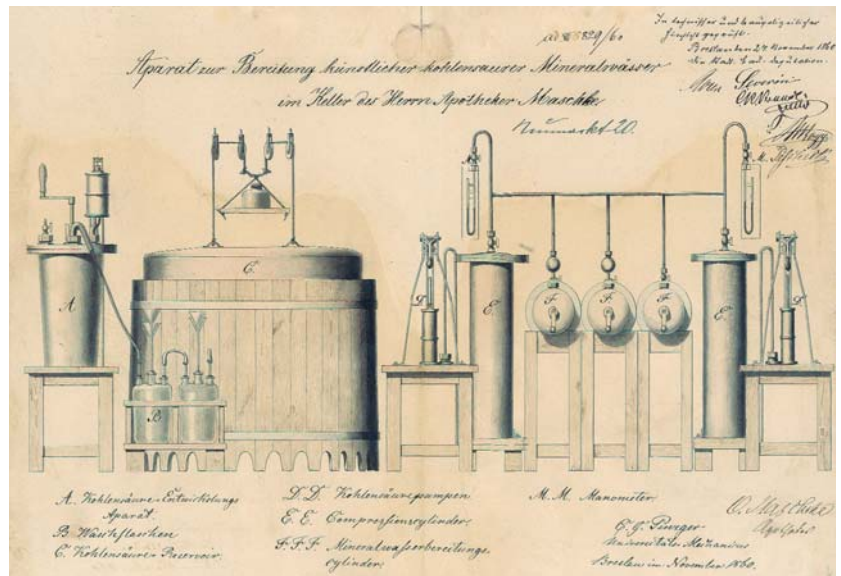 ad № 5829/60
In technischer und baupolizeilicher
Hinsicht geprüft.
Breslau den 27. November 1860
die Stadt. Bau. deputation.
Severin
Apärat zur Bereitung künstlicher kohlensaurer Mineralwässer
im Keller des Herrn Apotheker Maschke
Neumarkt 20.
A
B
C.
D
E.
F.
F.
F.
E.
D
A. Kohlensäure-Entwickelungs
Aparat.
B Waschflaschen
C. Kohlensäure-Reservoir.
D. D. Kohlensäurepumpen
E. E. Compressionscylinder.
F. F. F. Mineralwasserbereitungs-
cylinder.
M. M. Manometer.
Universitäts Mechanicus
Breslau im November 1860.
O. Maschke
Apotheker